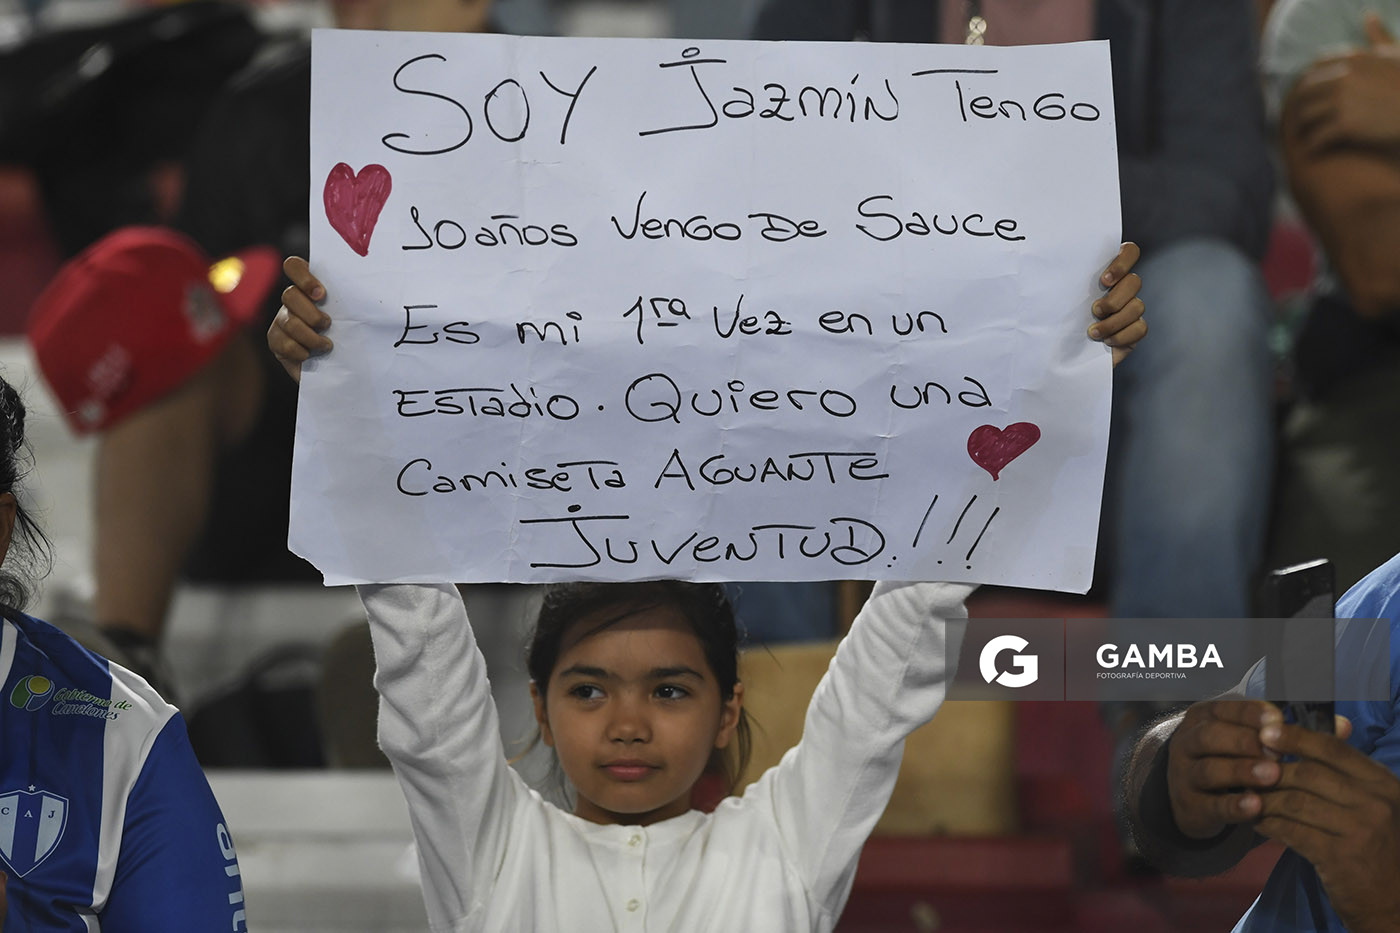 SOY Jazmín Tengo
10 años Vengo De Sauce
Es mi 1ra Vez en un
Estadio. Quiero una
Camiseta AGUANTE
JUVENTUD.!!!
Gobierno de
Canelones
CAJ
G GAMBA
FOTOGRAFÍA DEPORTIVA